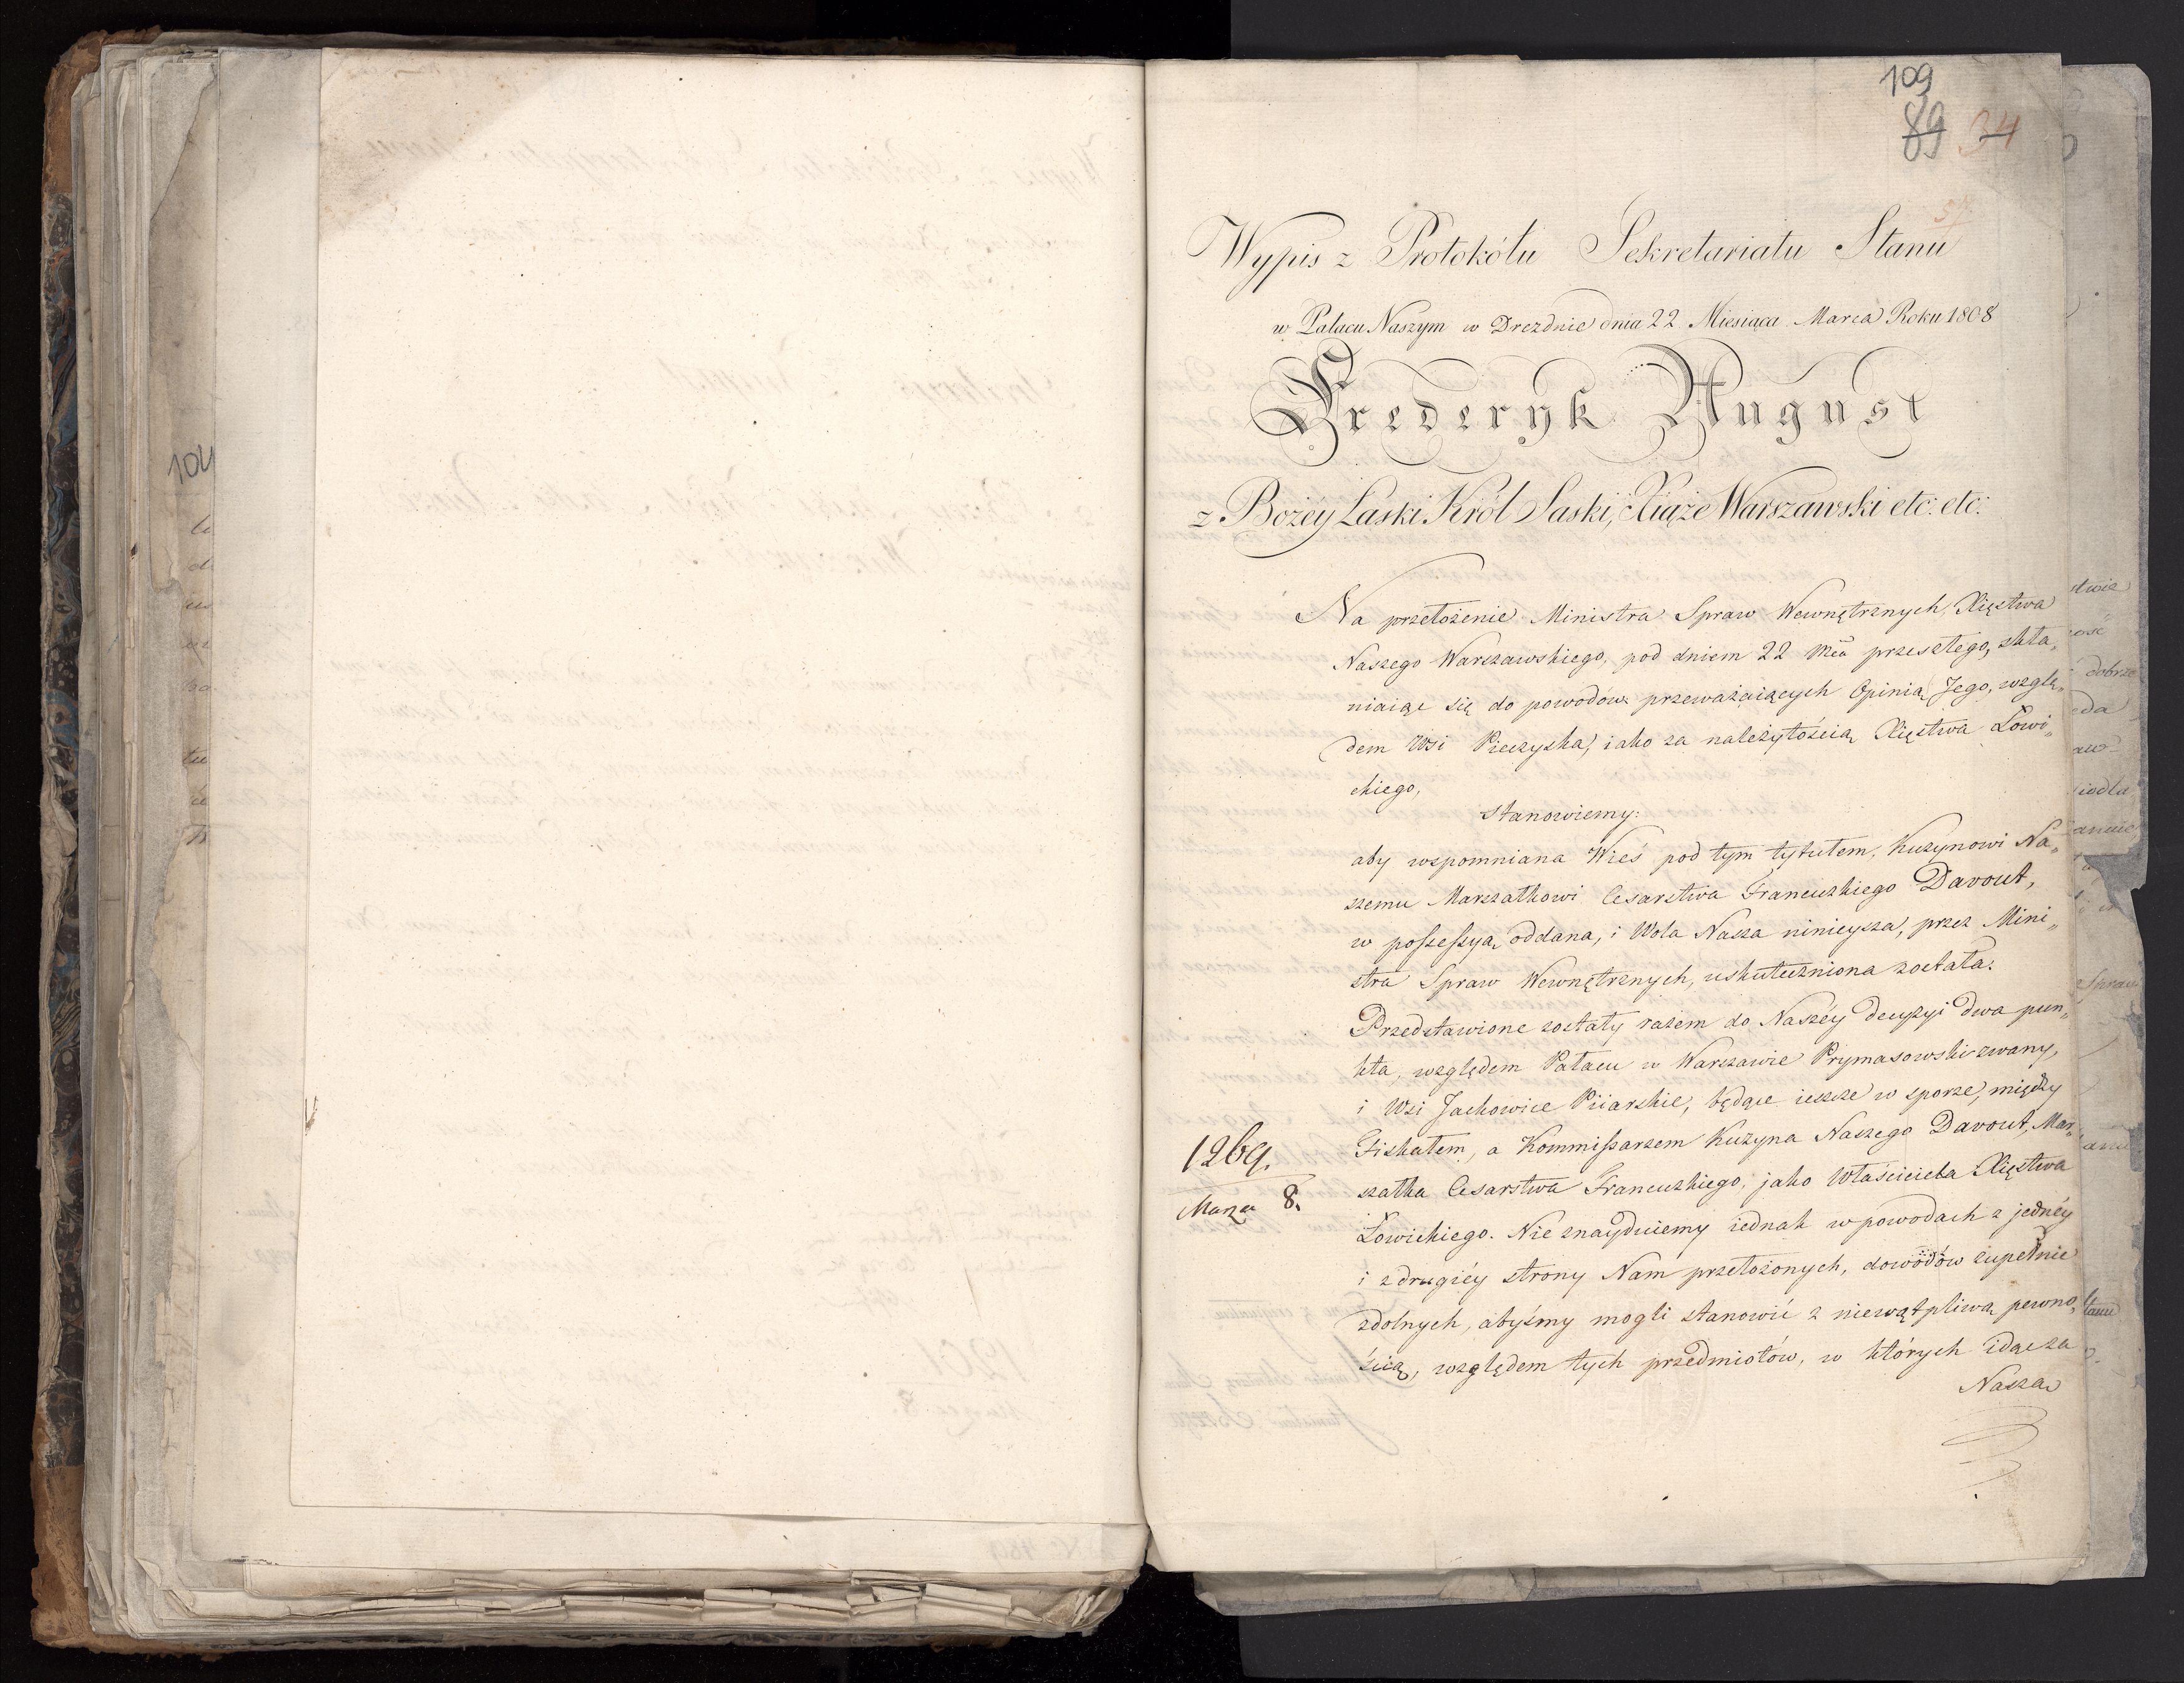 109
89 34
37
Wypis z Protokółu Sekretariatu Stanu
w Pałacu Naszym w Dreznie dnia 22 Miesiąca Marca Roku 1808
Frederyk August
z Bożéy Łaski Król Saski, Xiąże Warszawski etc: etc:
Na przełożenie Ministra Spraw Wewnętrznych, Xięstwa
Naszego Warszawskiego, pod dniem 22 mca przeszłego, skła„
niaiąc się do powodów przeważaiących Opinią Jego, wzglę„
dem Wsi Pieczyska, iako za należytością Xięstwa Łowi„
ckiego,
Stanowiemy:
aby wspomniana Wieś pod tym tytułem, Kuzynowi Na„
szemu Marszałkowi Cesarstwa Francuzkiego Davout,
w possessyą oddana, i Wola Nasza ninieysza, przez Mini„
stra Spraw Wewnętrznych, uskuteczniona została.
Przedstawione zostały razem do Naszéy decyzyi dwa pun„
kta, względem Pałacu w Warszawie Prymasowski zwany,
i Wsi Jachowice Piiarskie, będące ieszcze w sporze, między
Fiskałem, a Kommissarzem Kuzyna Naszego Davout, Mar„
szałka Cesarstwa Francuzkiego, jako Właściciela Xięstwa
Łowickiego. Nie znayduiemy iednak w powodach z jednéy
i z drugiéy strony Nam przełożonych, dowodów zupełnie
zdolnych, abyśmy mogli stanowić z niewątpliwą pewno„
ścią, względem tych przedmiotów, w których idąc za
Nasza
1269.
Marza 8.
104